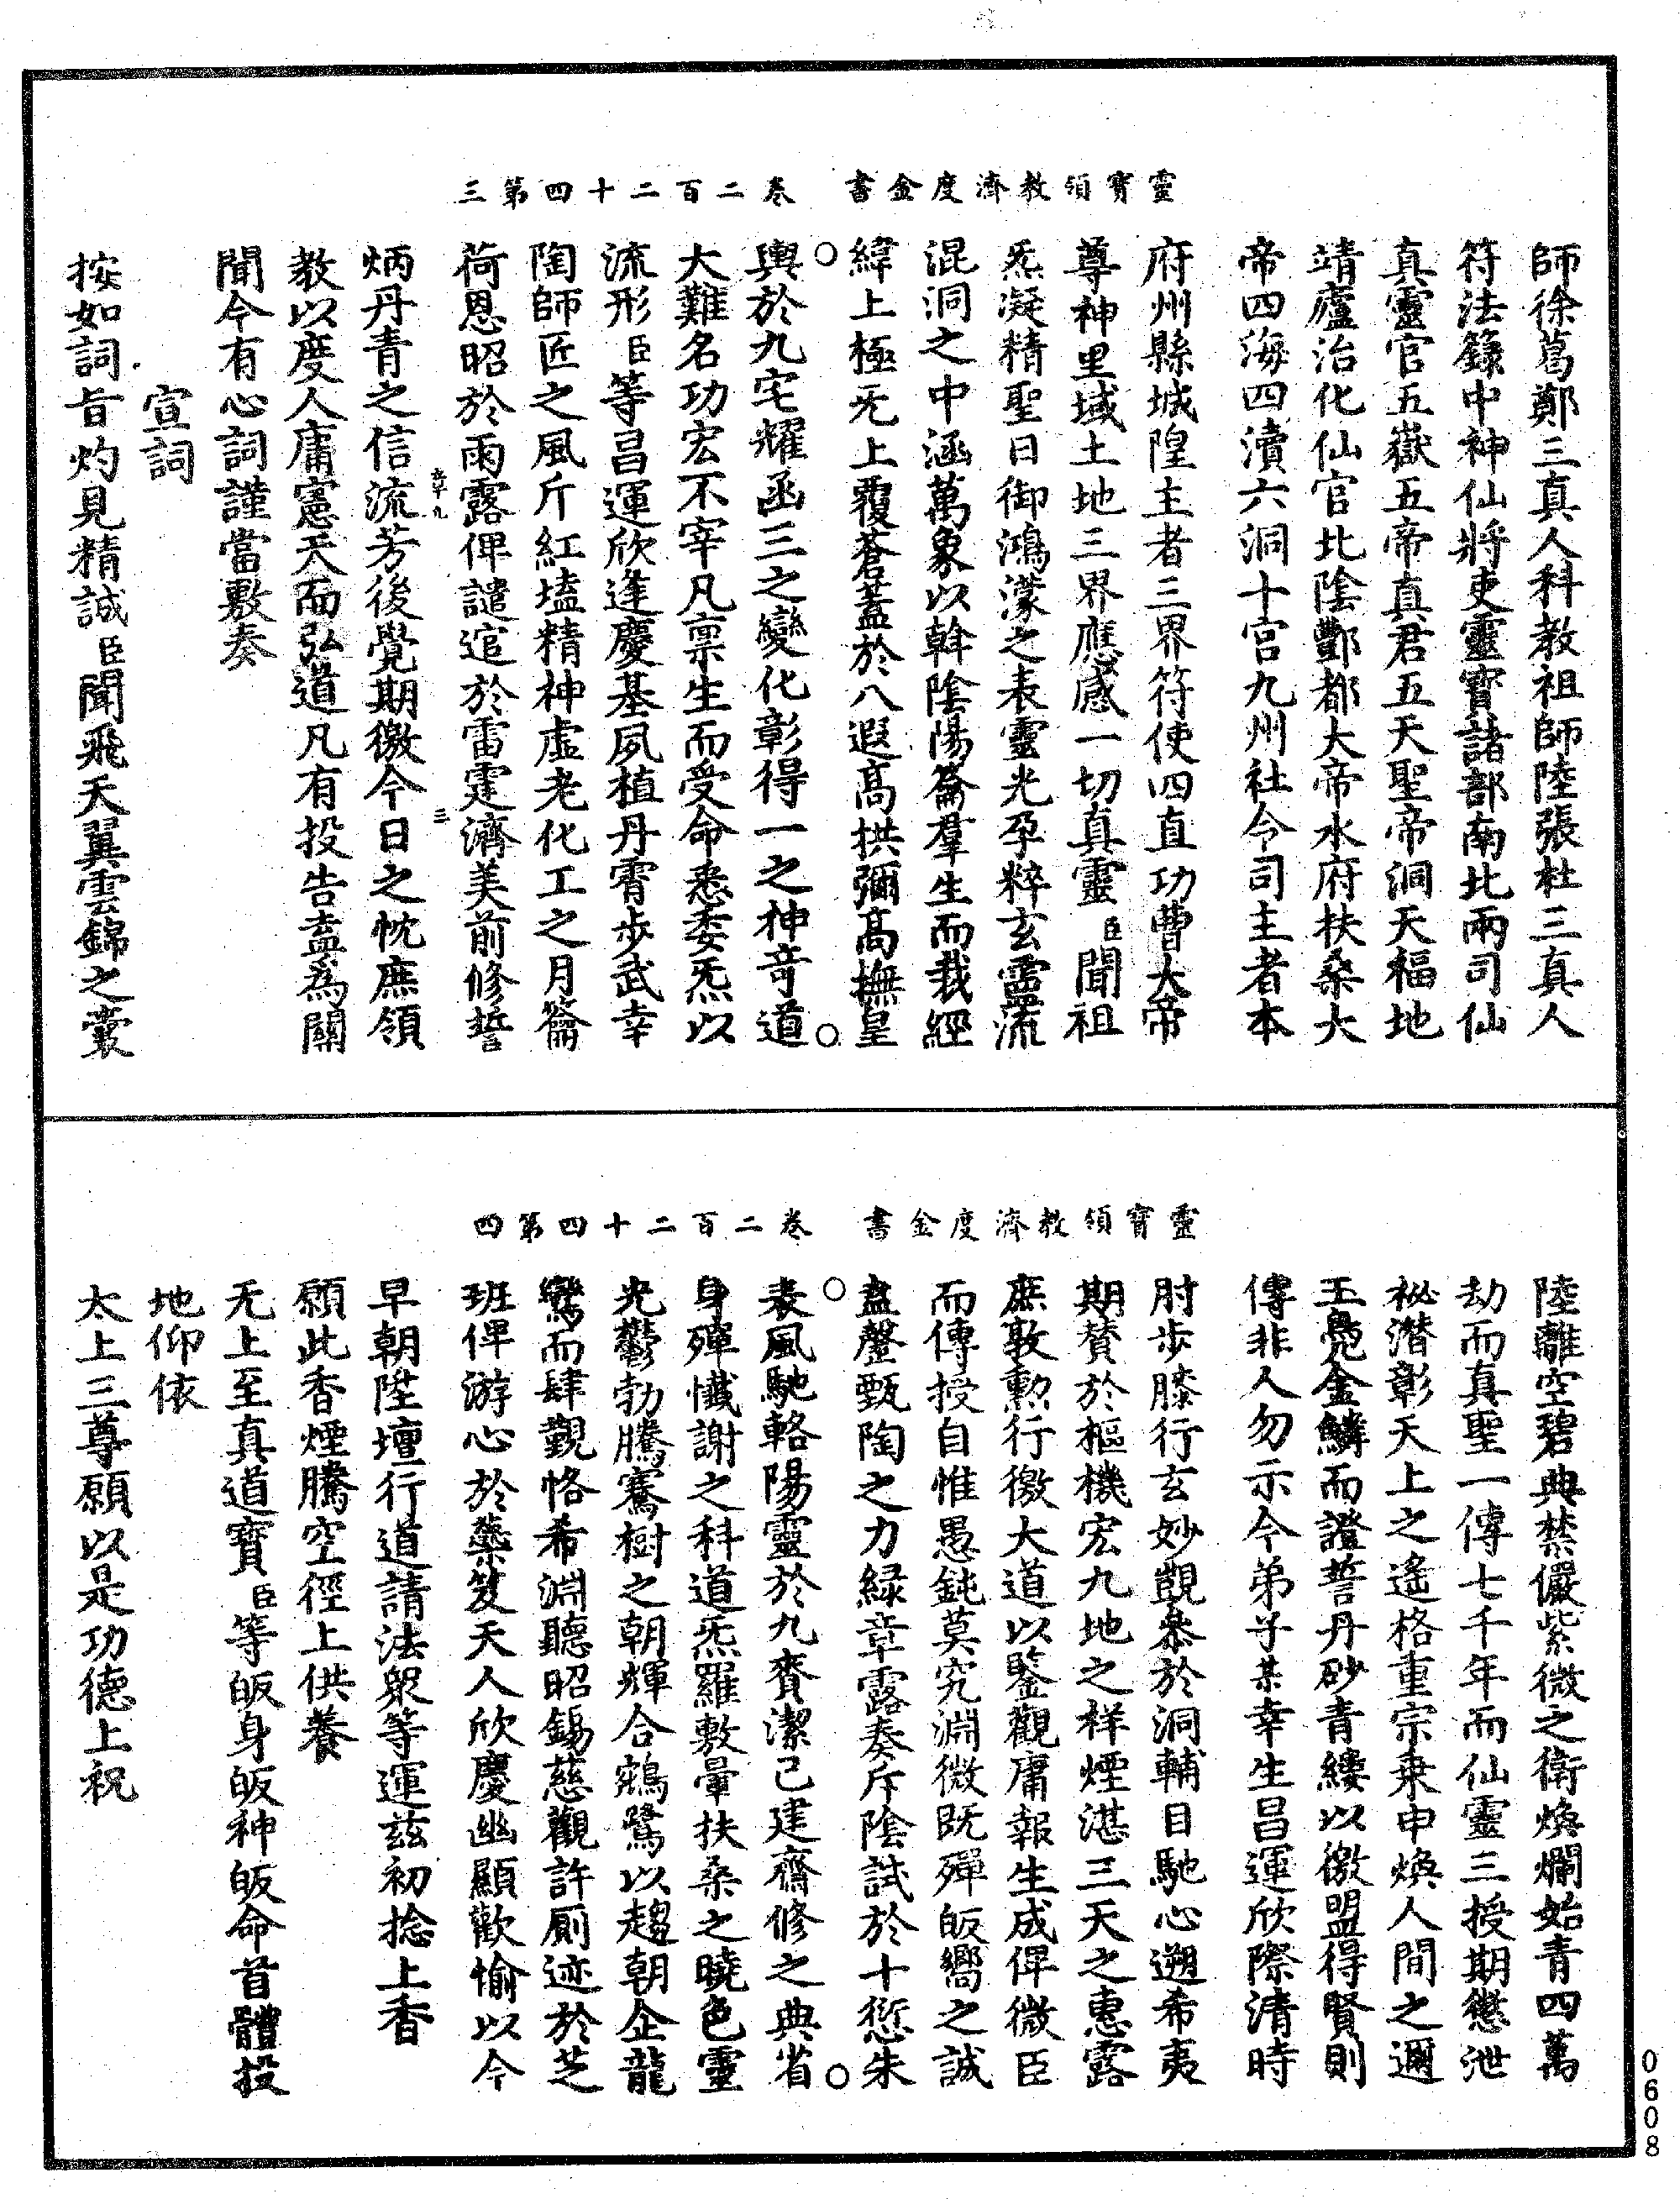 靈寶領教濟度金書　卷二百二十四第三
師徐葛鄭三真人科教祖師陸張杜三真人
符法籙中神仙將吏靈寶諸部南北兩司仙
真靈官五嶽五帝真君五天聖帝洞天福地
靖廬治化仙官北陰酆都大帝水府扶桑大
帝四海四瀆六洞十宮九州社令司主者本
府州縣城隍主者三界符使四直功曹大帝
尊神里域土地三界應感一切真靈臣聞祖
炁凝精聖日御鴻濛之表靈光孕粹玄雲流
混洞之中涵萬象以斡陰陽籥羣生而裁經
緯上極旡上覆蒼蓋於八遐高拱彌高撫皇
輿於九宅耀函三之變化彰得一之神奇道
大難名功宏不宰凡禀生而受命悉委炁以
流形臣等昌運欣逢慶基夙植丹霄步武幸
陶師匠之風斤紅壒精神虛老化工之月籥
荷恩昭於雨露俾譴逭於雷霆濟美前修誓
炳丹青之信流芳後覺期徼今日之忱庶領
教以度人庸憲天而弘道凡有投告盍為關
聞今有心詞謹當敷奏
宣詞
按如詞旨灼見精誠臣聞飛天翼雲錦之囊
靈寶領教濟度金書　卷二百二十四第四
陸離空碧典禁儼紫微之衛煥爛始青四萬
劫而真聖一傳七千年而仙靈三授期懲泄
祕潛彰天上之遙格重宗乗申煥人間之邇
玉鳧金鱗而證誓丹砂青縷以徼盟得賢則
傳非人勿示今弟子某幸生昌運欣際清時
肘步膝行玄妙覬叅於洞輔目馳心遡希夷
期賛於樞機宏九地之祥煙湛三天之惠露
庶敦勲行徼大道以鑒觀庸報生成俾微臣
而傳授自惟愚鈍莫究淵微既殫皈嚮之誠
盍罄甄陶之力緑章露奏斥陰試於十愆朱
表風馳輅陽靈於九賚潔己建齋修之典省
身殫懺謝之科道炁羅敷暈扶桑之曉色靈
光鬱勃騰騫樹之朝輝合鵷鷺以趨朝企龍
鸞而肆覲恪希淵聽昭錫慈觀許厠迹於芝
班俾游心於蘂笈天人欣慶幽顯歡愉以今
早朝陞壇行道請法衆等運兹初捻上香
願此香煙騰空徑上供養
无上至真道寶臣等皈身皈神皈命首體投
地仰依
太上三尊願以是功德上祝
0608